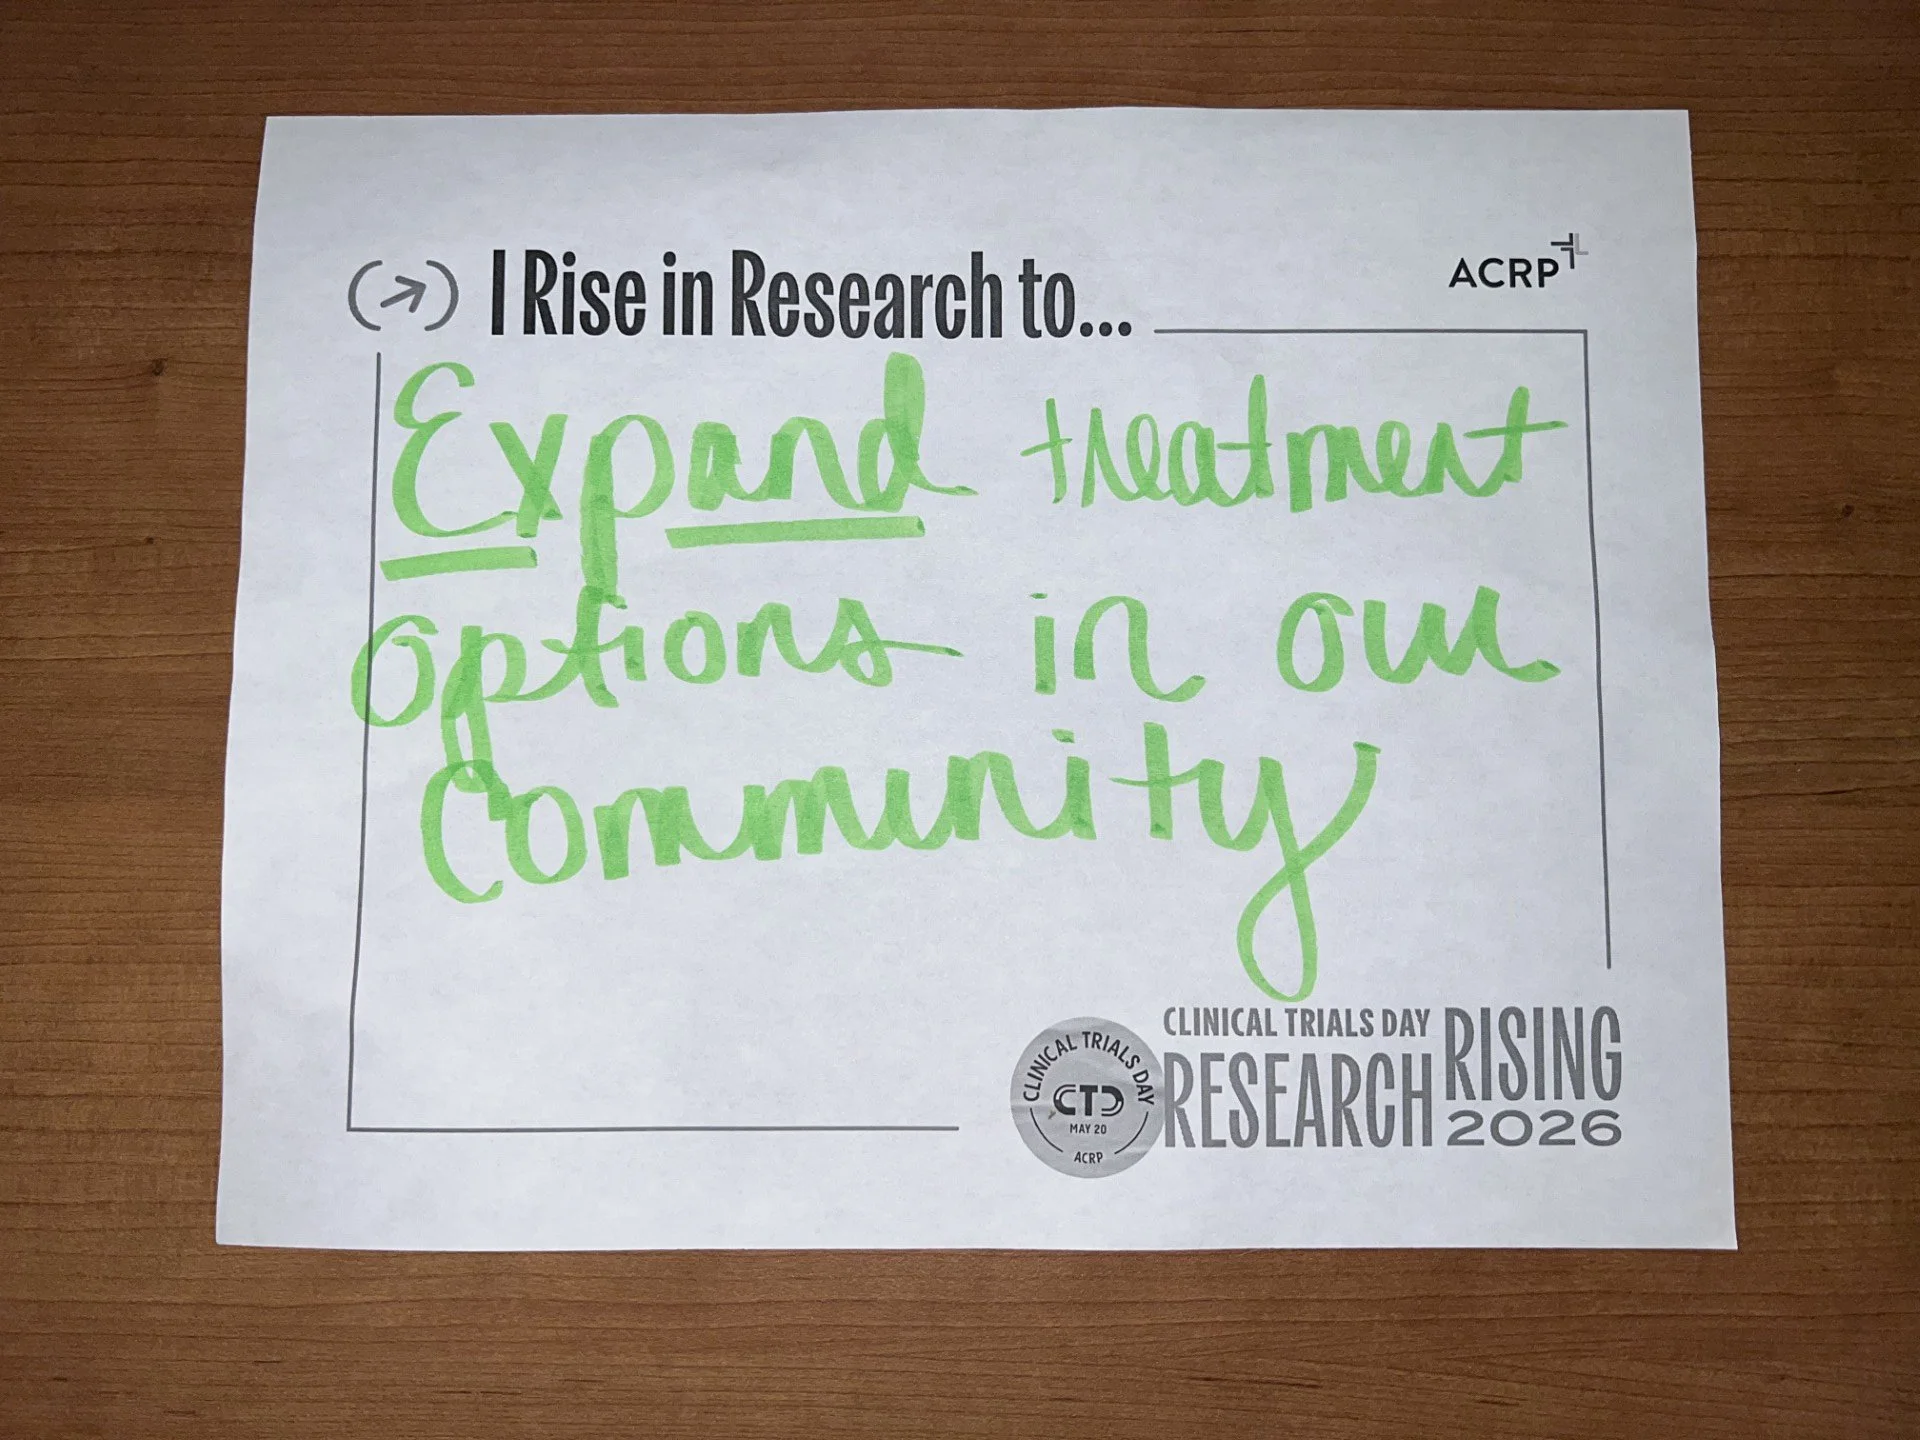 I Rise in Research to...
ACRP
Expand treatment
options in our
Community
CLINICAL TRIALS DAY
CTD
MAY 20
ACRP
CLINICAL TRIALS DAY
RESEARCH RISING
2026